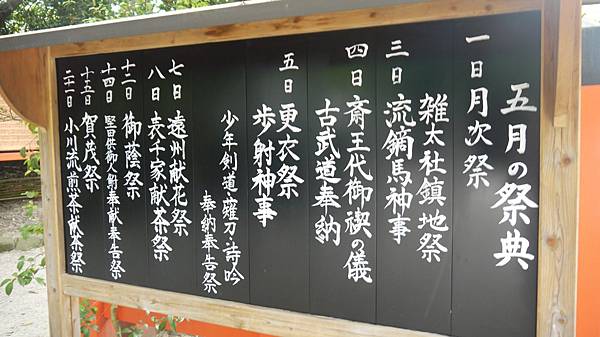 五月の祭典
一日 月次祭
雑太社鎮地祭
三日 流鏑馬神事
四日 斎王代御禊の儀
古武道奉納
五日 更衣祭
歩射神事
少年剣道・薙刀・詩吟
奉納奉告祭
七日 遠州献花祭
八日 表千家献茶祭
十二日 御蔭祭
十四日 堅田供御人鮒奉献奉告祭
十五日 賀茂祭
二十一日 小川流煎茶献茶祭